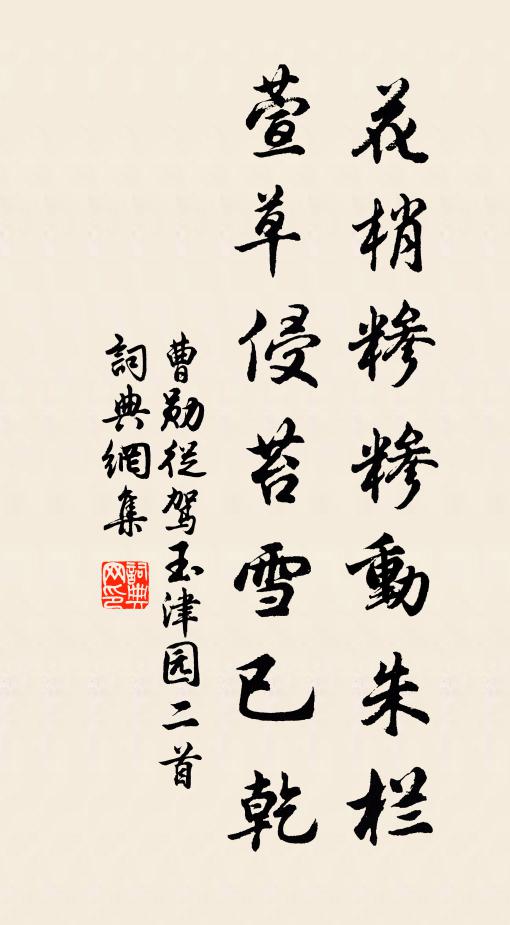 花梢糝糝動朱栏
萱草侵苔雪已乾
曹勋從駕玉津园二首
詞典網集
詞典网印